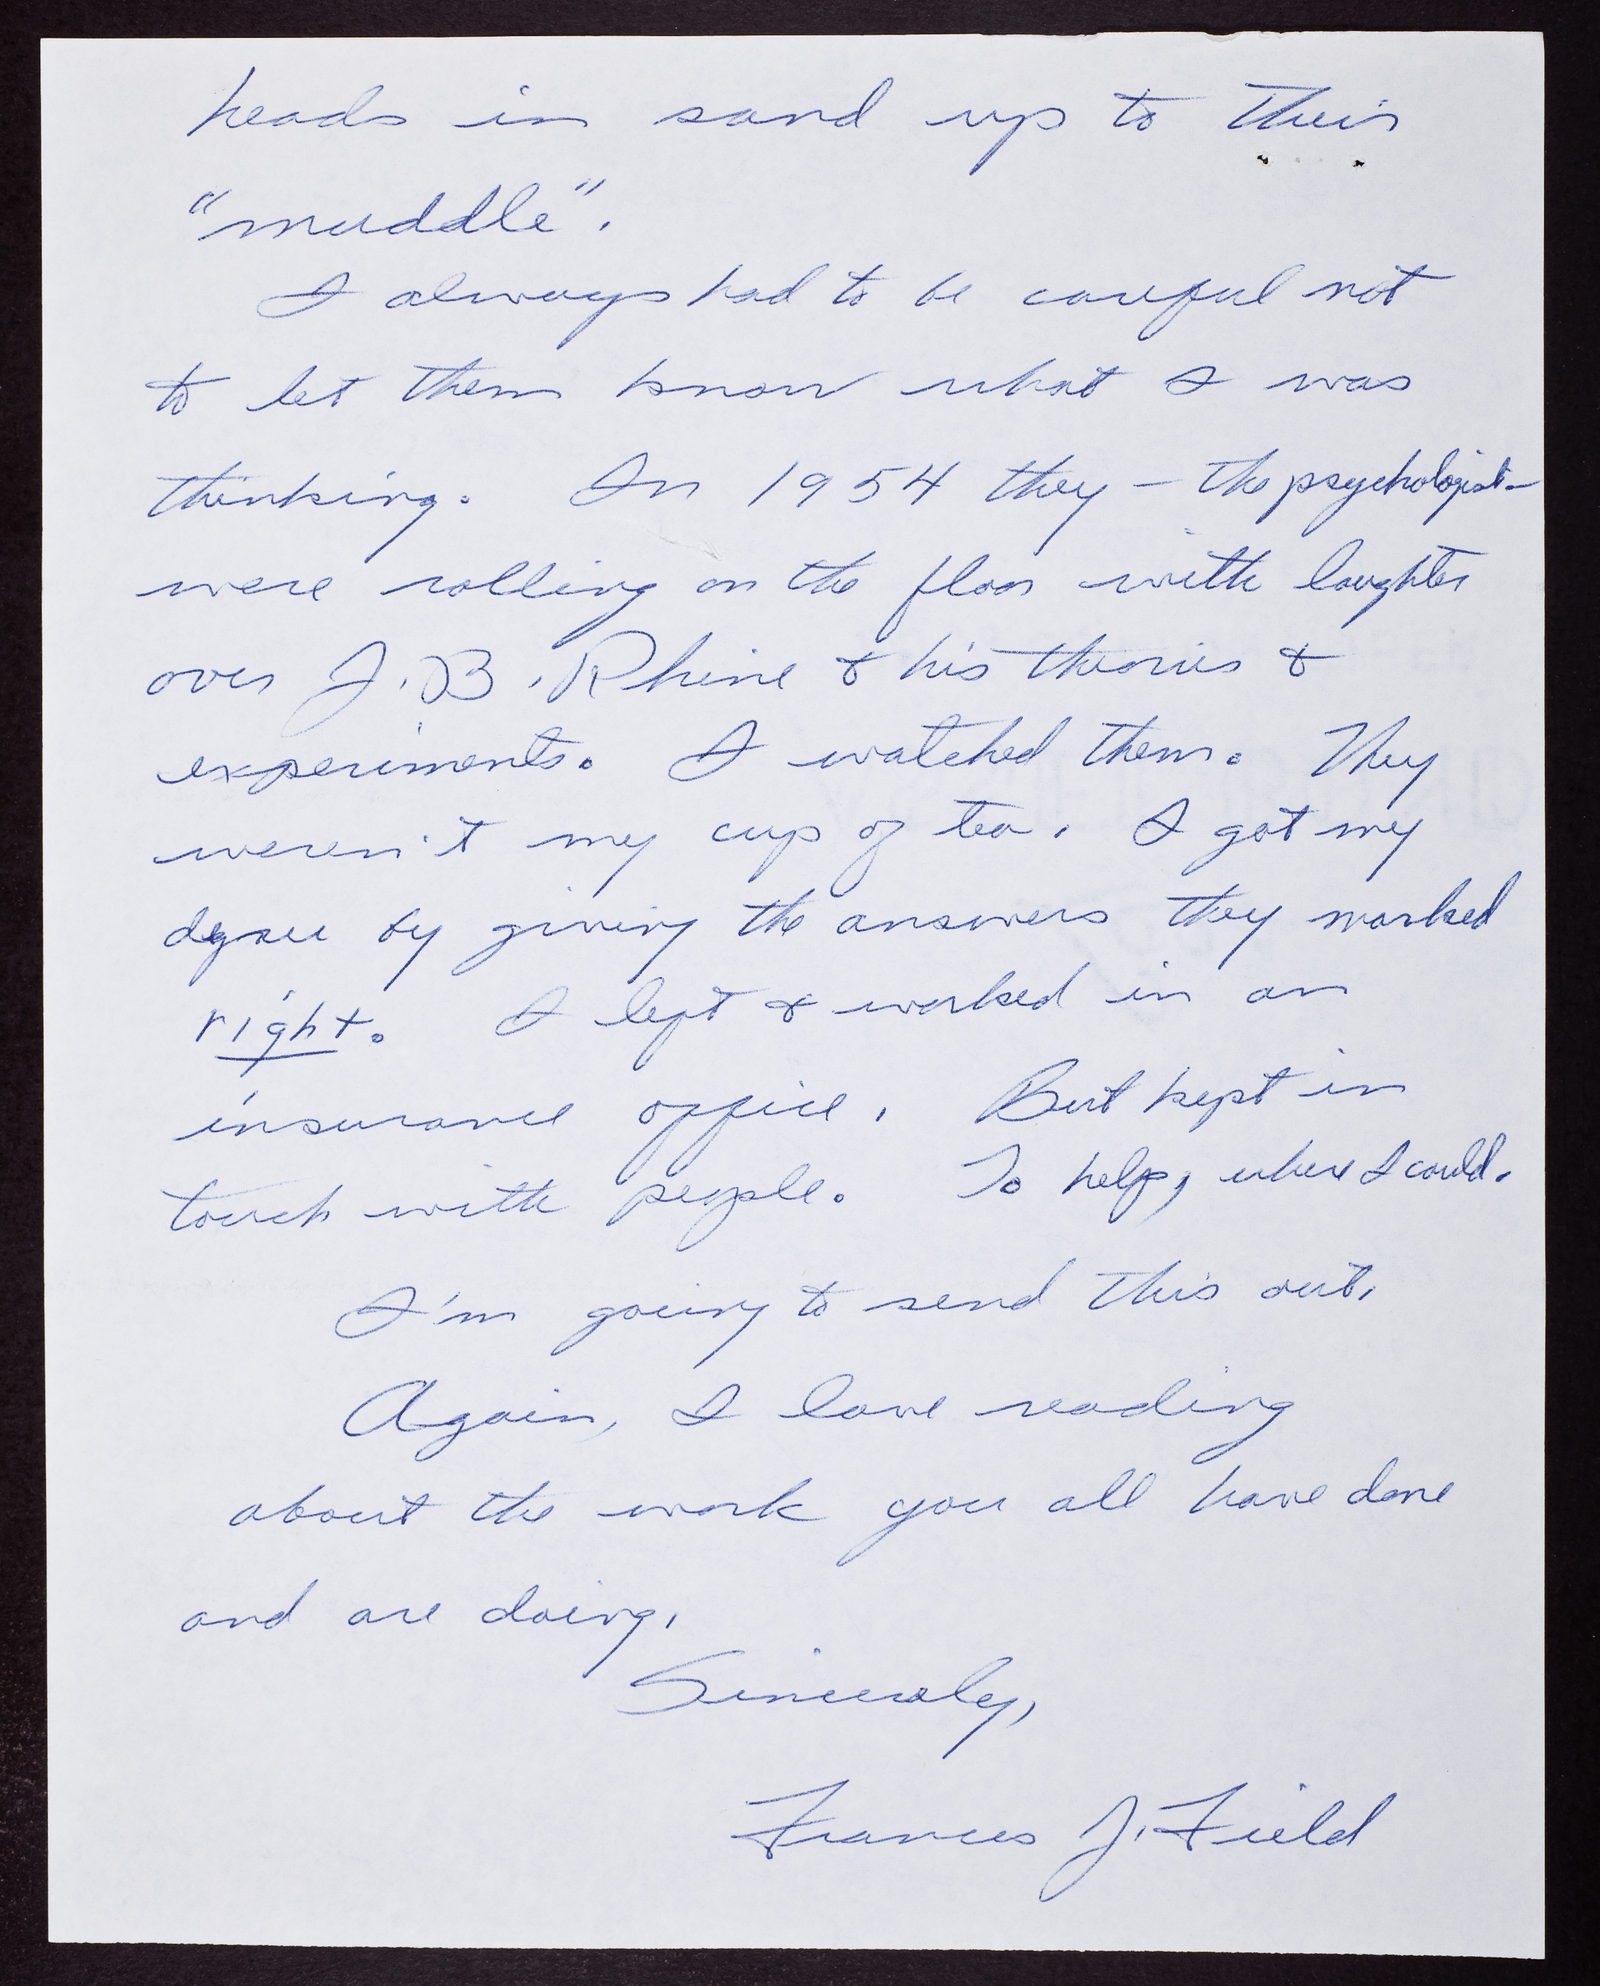 heads in sand up to their
"muddle".
I always had to be careful not
to let them know what I was
thinking. In 1954 they – the psychologist –
were rolling on the floor with laughter
over J.B. Rhine & his theories &
experiments. I watched them. They
weren't my cup of tea. I got my
degree by giving the answers they marked
right. I left & worked in an
insurance office. But kept in
touch with people. To help, where I could.
I'm going to send this out.
Again, I love reading
about the work you all have done
and are doing.
Sincerely,
Frances J. Field